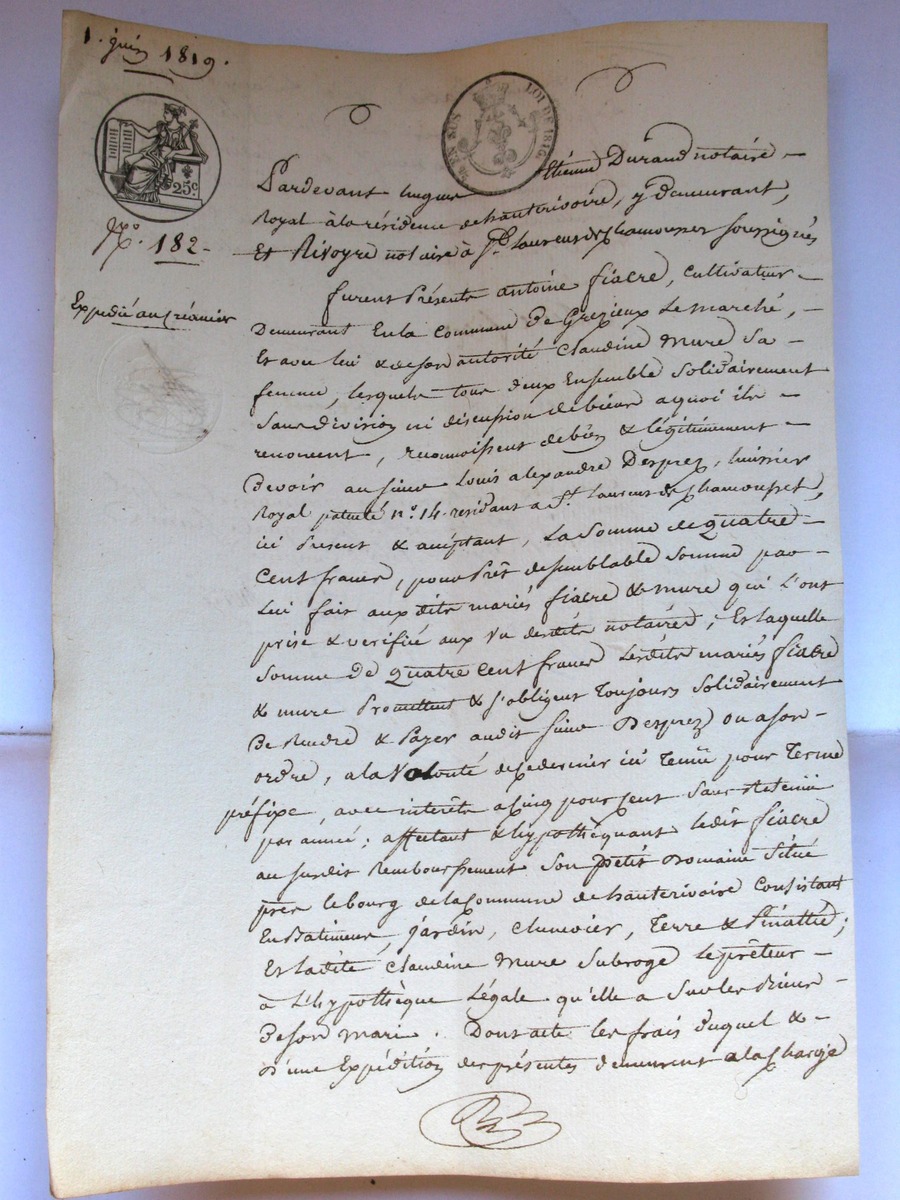 1. juin 1819.
25c.
EN SUS
LOI DE 1816.
N.º 182
Expédié au Créancier
Pardevant hugue Etienne Durand notaire
Royal à la résidence de hauterivoire, y demeurant,
Et Rivoyre notaire à St. Laurens de Chamousset soussignés
furent Présents antoine fiacre, cultivateur
Demeurant En la commune De Grezieux Le marché,
Et avec lui & de son autorité Claudine Mure Sa
femme, lesquels tous deux Ensemble Solidairement
Sans division ni discussion de biens a quoi ils
renoncent, reconnoissent de bien & légitimement
Devoir au sieur Louis alexandre Desprez, huissier
Royal patenté nº. 14. residant a St. Laurens de Chamousset,
ici Present & acceptant, La Somme de quatre
Cent francs, pour Prêt de semblable Somme par
Lui fait aux dits mariés fiacre & Mure qui L'ont
prise & verifiée aux vu desdits notaires; Et laquelle
Somme De quatre Cent francs Lesdits mariés fiacre
& mure Promettent & s'obligent Toujours Solidairement
De Rendre & Payer audit sieur Desprez ou a son
ordre, a la Volonté de ce dernier ici Tenüe pour Terme
préfixe, avec intérêts a Cinq pour Cent Sans Retenüe
par année; affectant & hypothéquant Ledit fiacre
au susdit Remboursement Son petit Domaine Situé
près le bourg de la Commune de hauterivoire Consistant
En Batimens, Jardin, Chenevier, Terre & Pinattée;
Et ladite Claudine Mure Subroge Le prêteur
à L'hypothèque Légale qu'elle a Sur les Biens
De son Mari. Dont acte les frais duquel &
D'une Expédition des présentes demeurent a la Charge